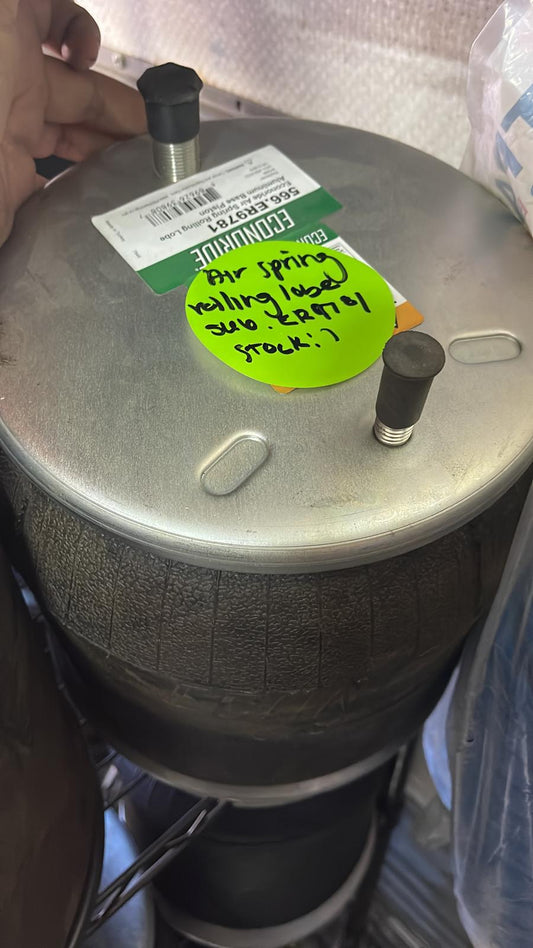 566.ER9781
Econoride Air Spring Rolling Lobe
Aluminum Base Piston
ECONORIDE
ECON
Air spring
rolling lobe
sub. ER9781
stock: 7